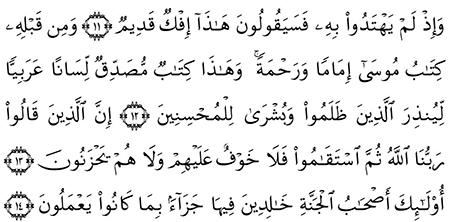 وَإِذْ لَمْ يَهْتَدُوا۟ بِهِۦ فَسَيَقُولُونَ هَـٰذَآ إِفْكٌ قَدِيمٌ ﴿١١﴾ وَمِن قَبْلِهِۦ
كِتَـٰبُ مُوسَىٰٓ إِمَامًا وَرَحْمَةً ۚ وَهَـٰذَا كِتَـٰبٌ مُّصَدِّقٌ لِّسَانًا عَرَبِيًّا
لِّيُنذِرَ ٱلَّذِينَ ظَلَمُوا۟ وَبُشْرَىٰ لِلْمُحْسِنِينَ ﴿١٢﴾ إِنَّ ٱلَّذِينَ قَالُوا۟
رَبُّنَا ٱللَّهُ ثُمَّ ٱسْتَقَـٰمُوا۟ فَلَا خَوْفٌ عَلَيْهِمْ وَلَا هُمْ يَحْزَنُونَ ﴿١٣﴾
أُو۟لَـٰٓئِكَ أَصْحَـٰبُ ٱلْجَنَّةِ خَـٰلِدِينَ فِيهَا جَزَآءًۢ بِمَا كَانُوا۟ يَعْمَلُونَ ﴿١٤﴾